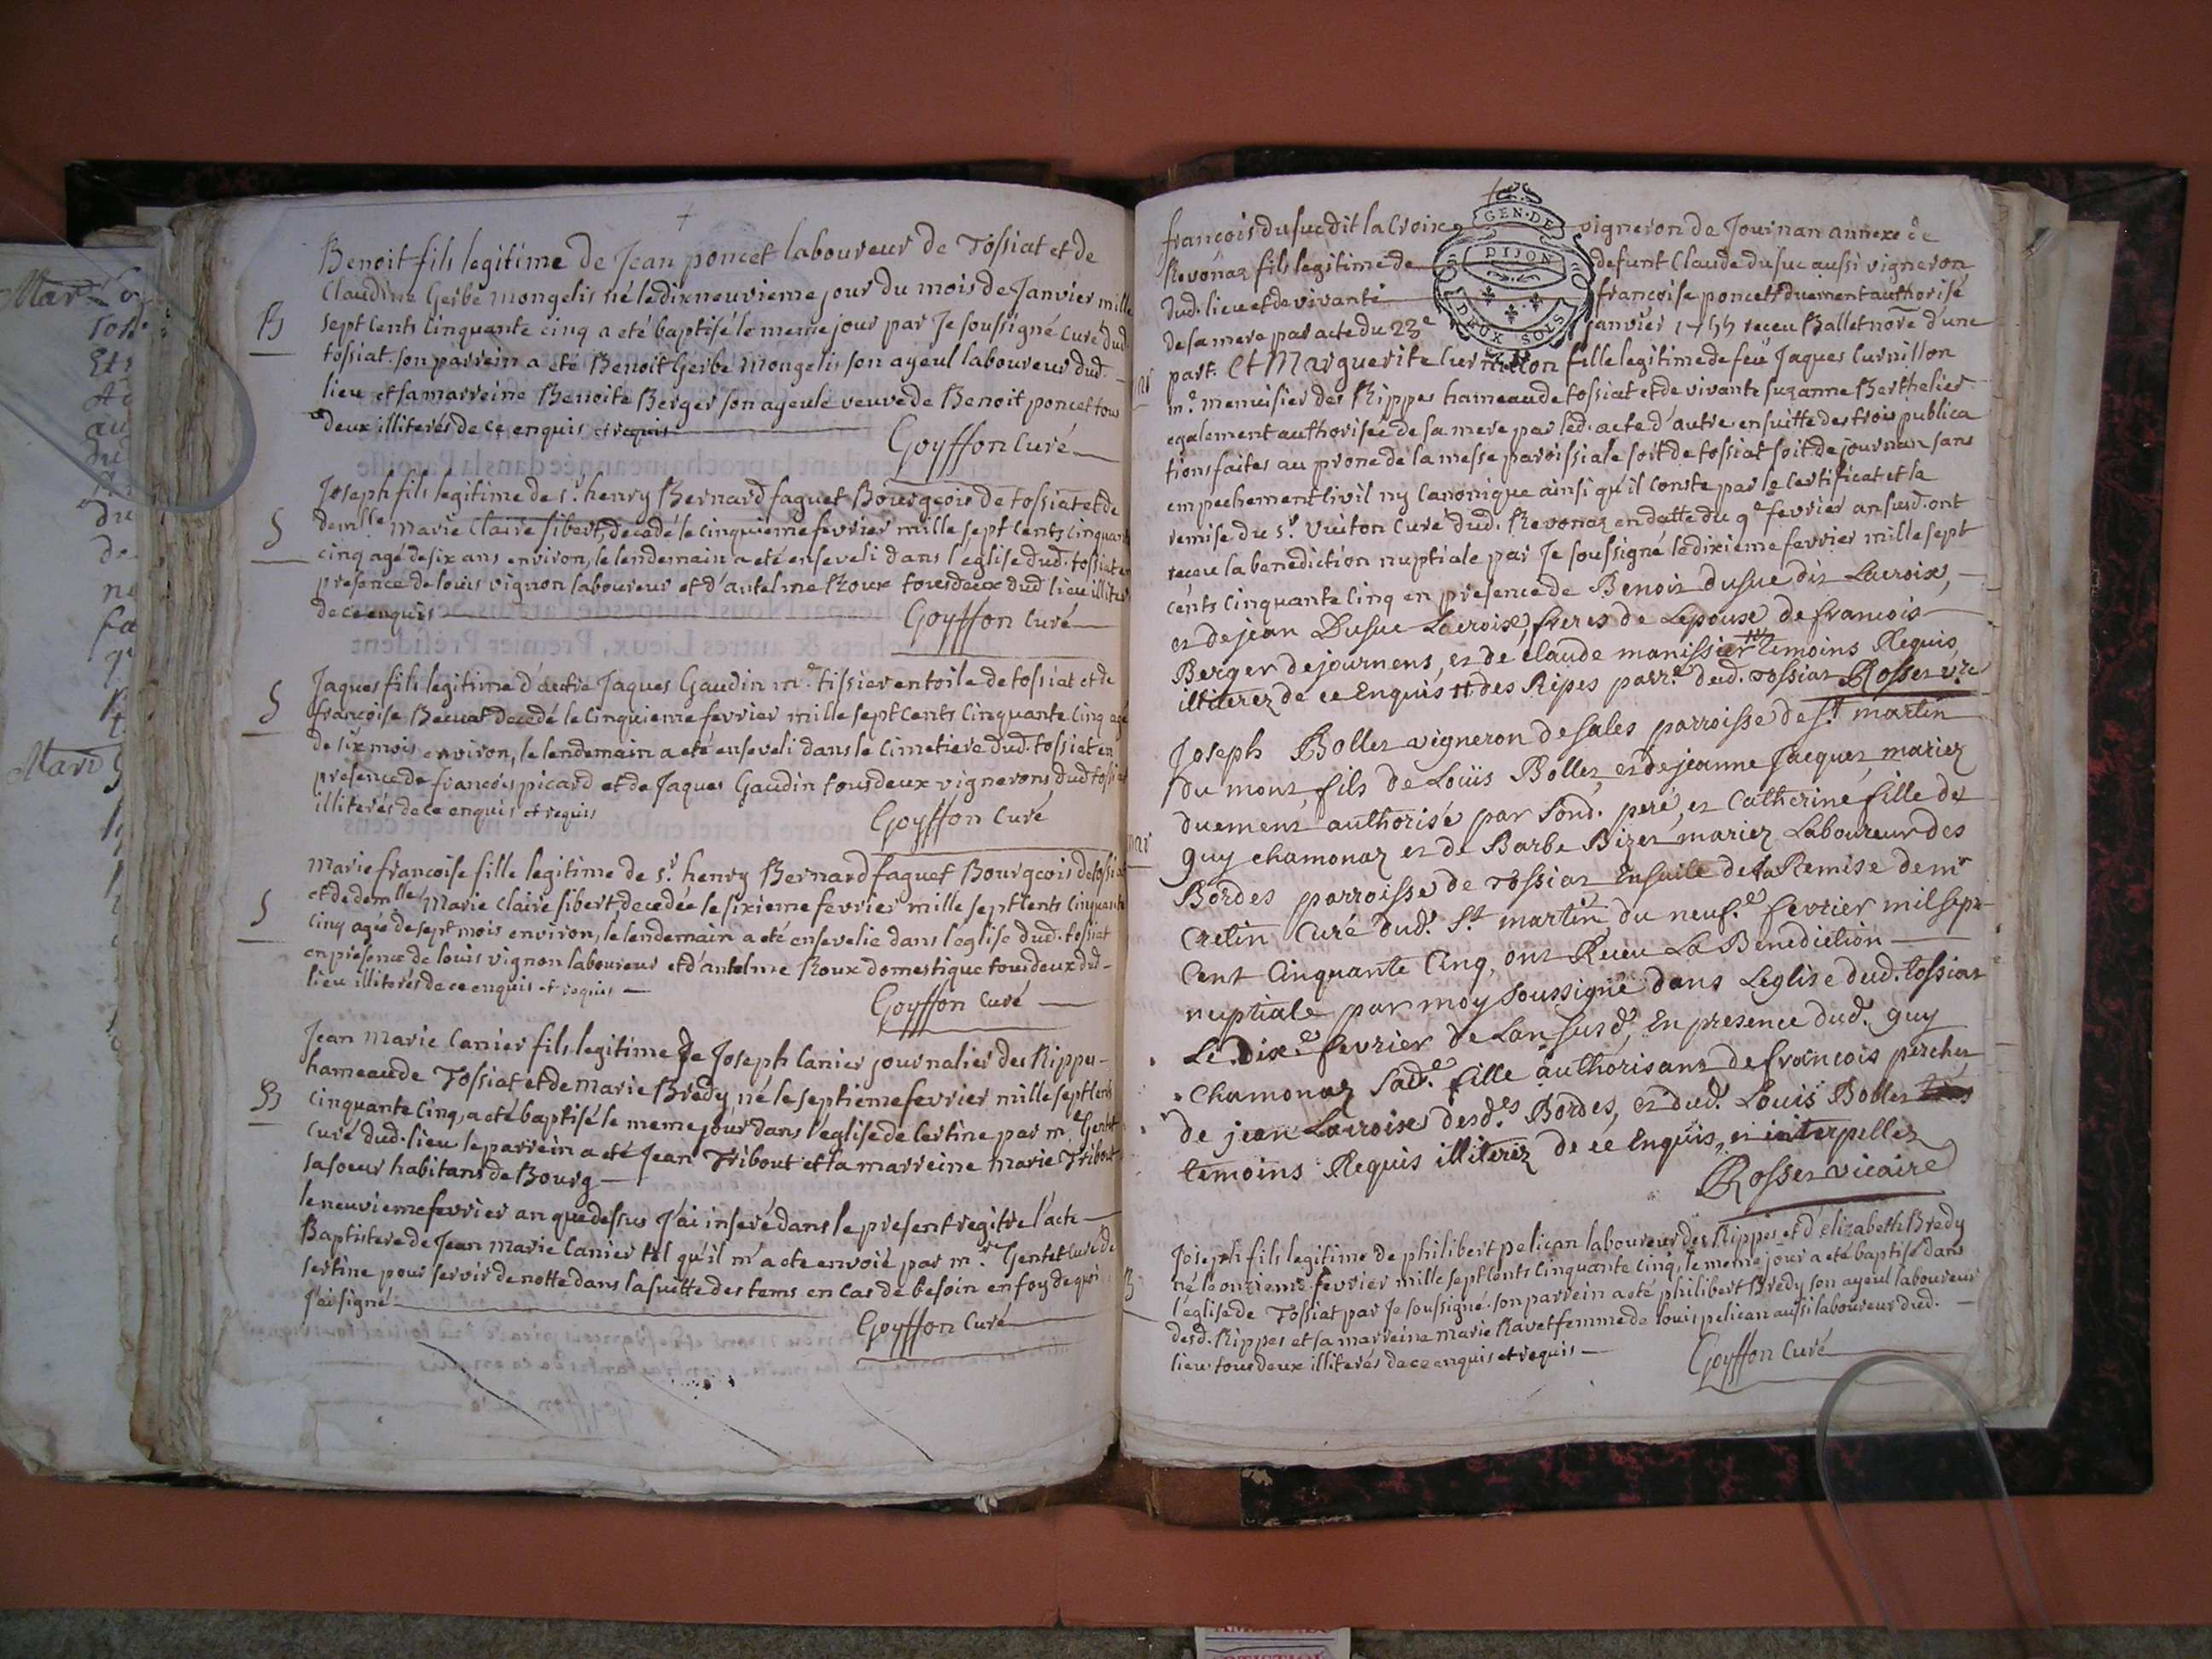 Benoit fils legitime de Jean poncet laboureur de Tossiat et de
Claudine Gerbe mongelis né le dixneuvieme jour du mois de Janvier mille
B
sept cents cinquante cinq a eté baptisé le meme jour par Je soussigné curé dud.
tossiat. son parrein a eté Benoit Gerbe mongelis son ayeul laboureur dud.
lieu et sa marreine Benoite Berger son ayeule veuve de Benoit poncet tous
deux illiterés de ce enquis et requis
Goyffon Curé
Joseph fils legitime de sr. henry Bernard faguet Bourgeois de tossiat et de
S
demlle. Marie Claire sibert, decedé le cinquieme fevrier mille sept cents cinquante
cinq agé de six ans environ, le lendemain a eté enseveli dans l'eglise dud. tossiat en
presence de louis vignon laboureur et d'antelme Roux tous deux dud. lieu illiter
de ce enquis
Goyffon Curé
Jaques fils legitime d'autre Jaques Gaudin me. tissier en toile de tossiat et de
S
francoise Becuat decedé le cinquieme fevrier mille sept cents cinquante cinq agé
de six mois environ, le lendemain a eté enseveli dans le cimetiere dud. tossiat en
presence de francois picard et de Jaques Gaudin tous deux vignerons dud. tossiat
illiterés de ce enquis et requis
Goyffon Curé
Marie francoise fille legitime de sr. henry Bernard faguet Bourgeois de tossiat
et de demlle Marie Claire sibert, decedée le sixieme fevrier mille sept cents cinquante
S
cinq agée de sept mois environ, le lendemain a eté ensevelie dans l'eglise dud. tossiat
en présence de louis vignon laboureur et d'antelme Roux domestique tous deux dud.
lieu illiterés de ce enquis et requis
Goyffon Curé
Jean Marie Canier fils legitime de Joseph Canier journalier des Rippes
hameau de Tossiat et de Marie Bredy, né le septieme fevrier mille sept cents
B
cinquante cinq, a eté baptisé le meme jour dans l'eglise de Certine par mr. Gentet
curé dud. lieu le parrein a eté Jean Tribout et la marreine marie Tribout
sa soeur habitans de Bourg
le neuvieme fevrier an que dessus J'ai inseré dans le present regitre l'acte
Baptistere de Jean Marie Canier tel qu'il m'a ete envoié par mr. Gentet curé de
sertine pour servir de notte dans la suitte des tems en cas de besoin en foy de quoi
j'ai signé
Goyffon Curé
GEN. DE
DIJON
DEUX SOLS
francois dusuc dit la Croix vigneron de Journan annexe de
Revonaz fils legitime de defunt Claude dusuc aussi vigneron
dud. lieu et de vivante francoise poncet duement authorisé
de sa mere par acte du 23e janvier 1755 receu Ballet nore d'une
part. Et Marguerite Curnillon fille legitime de feu Jaques Curnillon
mar
me. menuisier des Rippes hameau de tossiat et de vivante suzanne Berthelier
egalement authorisée de sa mere par led. acte d'autre ensuitte des trois publica
tions faites au prone de la messe paroissiale soit de tossiat soit de journan sans
empechement civil ny Canonique ainsi qu'il conste par le Certificat et la
remise du sr. Vuiton curé dud. Revonaz en datte du 9e fevrier an susd. ont
receu la benediction nuptiale par Je soussigné le dixieme fevrier mille sept
cents cinquante cinq en presence de Benoit dusuc dit Lacroix,
et de jean Dusuc Lacroix, freres de Lepoux de francois
Berger de journens, et de claude manissier temoins Requis
illiterez de ce Enquis des Ripes parr.e dud. tossiat Rosset vre
Joseph Bollet vigneron de sales parroisse de st. martin
du mont, fils de Loüis Bollet, et de jeanne Jacquet mariez
duement authorisé par sond. peré, et Catherine fille de
mar
guy chamonaz et de Barbe Bizet mariez Laboureur des
Bordes parroisse de Tossiat Ensuite de la Remise de mr
Cretin Curé dud. St. martin du neuf.e fevrier mil sept
Cent Cinquante Cinq, ont Receu La Benediction
nuptiale par moy soussigné dans Leglise dud. tossiat
Le Dix.e fevrier de Lan susd., En presence dud. guy
Chamonaz Sad.e fille authorisant de francois percher
de jean Lacroix desd.es Bordes, et dud. Louis Bollet
temoins Requis illiterez de ce Enquis, et interpellez
Rosset vicaire
Joseph fils legitime de philibert pelican laboureur des Rippes et d'elizabeth Bredy
né le onzieme fevrier mille sept cents cinquante cinq, le meme jour a eté baptisé dans
B
l'eglise de Tossiat par Je soussigné. son parrein a eté philibert Bredy son ayeul laboureur
desd. Rippes et sa marreine marie Ravet femme de louis pelican aussi laboureur dud.
lieu tous deux illiterés de ce enquis et requis
Goyffon Curé